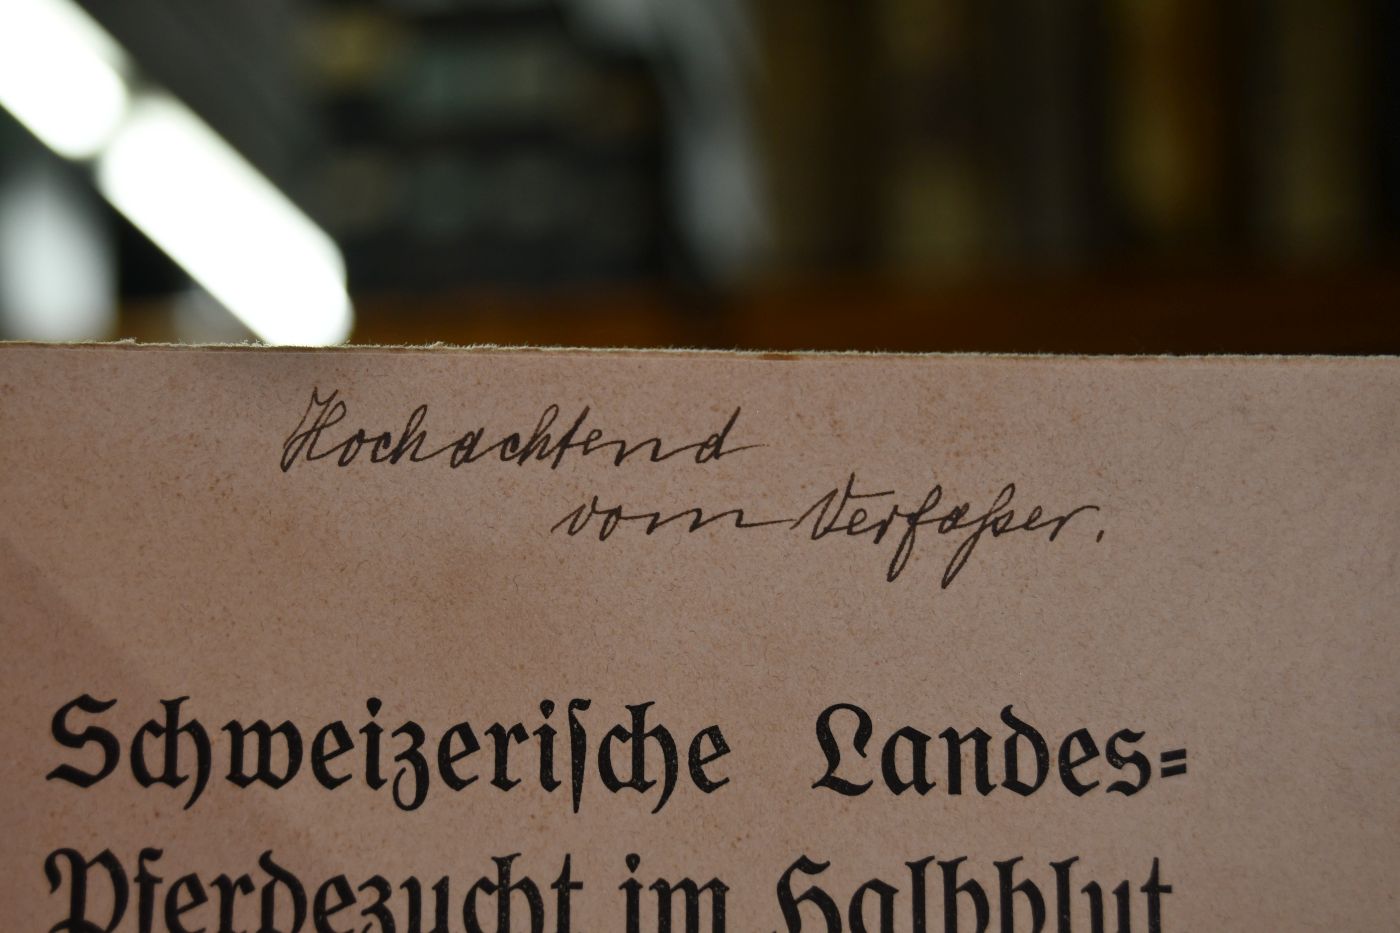 Hochachtend
vom Verfaßer.
Schweizerische Landes=
Pferdezucht im Halbblut